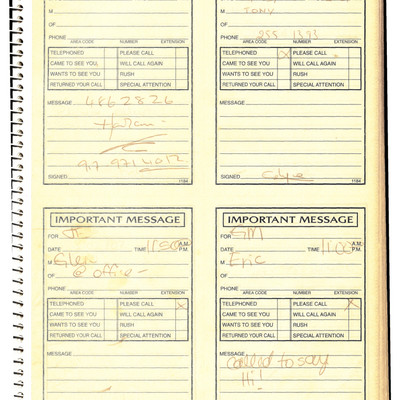 M
OF
PHONE
AREA CODE NUMBER EXTENSION
TELEPHONED PLEASE CALL
CAME TO SEE YOU WILL CALL AGAIN
WANTS TO SEE YOU RUSH
RETURNED YOUR CALL SPECIAL ATTENTION
MESSAGE
4862826
SIGNED
1184
M TONY
OF
PHONE 255 1323
AREA CODE NUMBER EXTENSION
TELEPHONED X PLEASE CALL
CAME TO SEE YOU WILL CALL AGAIN
WANTS TO SEE YOU RUSH
RETURNED YOUR CALL SPECIAL ATTENTION
MESSAGE
SIGNED
1184
IMPORTANT MESSAGE
FOR JE
DATE TIME 1150 A.M. P.M.
M Glen
OF @ office -
PHONE
AREA CODE NUMBER EXTENSION
TELEPHONED PLEASE CALL X
CAME TO SEE YOU WILL CALL AGAIN
WANTS TO SEE YOU RUSH
RETURNED YOUR CALL SPECIAL ATTENTION
MESSAGE
IMPORTANT MESSAGE
FOR GM
DATE TIME 1100 A.M. P.M.
M Eric
OF
PHONE
AREA CODE NUMBER EXTENSION
TELEPHONED PLEASE CALL X
CAME TO SEE YOU WILL CALL AGAIN
WANTS TO SEE YOU RUSH
RETURNED YOUR CALL SPECIAL ATTENTION
MESSAGE
called to say
Hi!